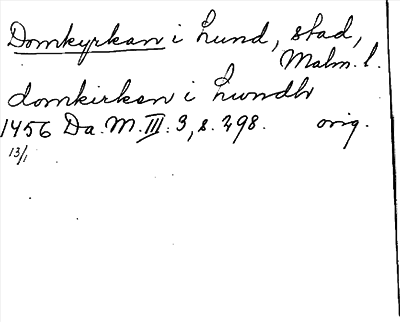 Domkyrkan i Lund, stad,
Malm. l.
domkirken i Lwndh
1456 Da. M. III: 3, s. 298. orig.
13/1